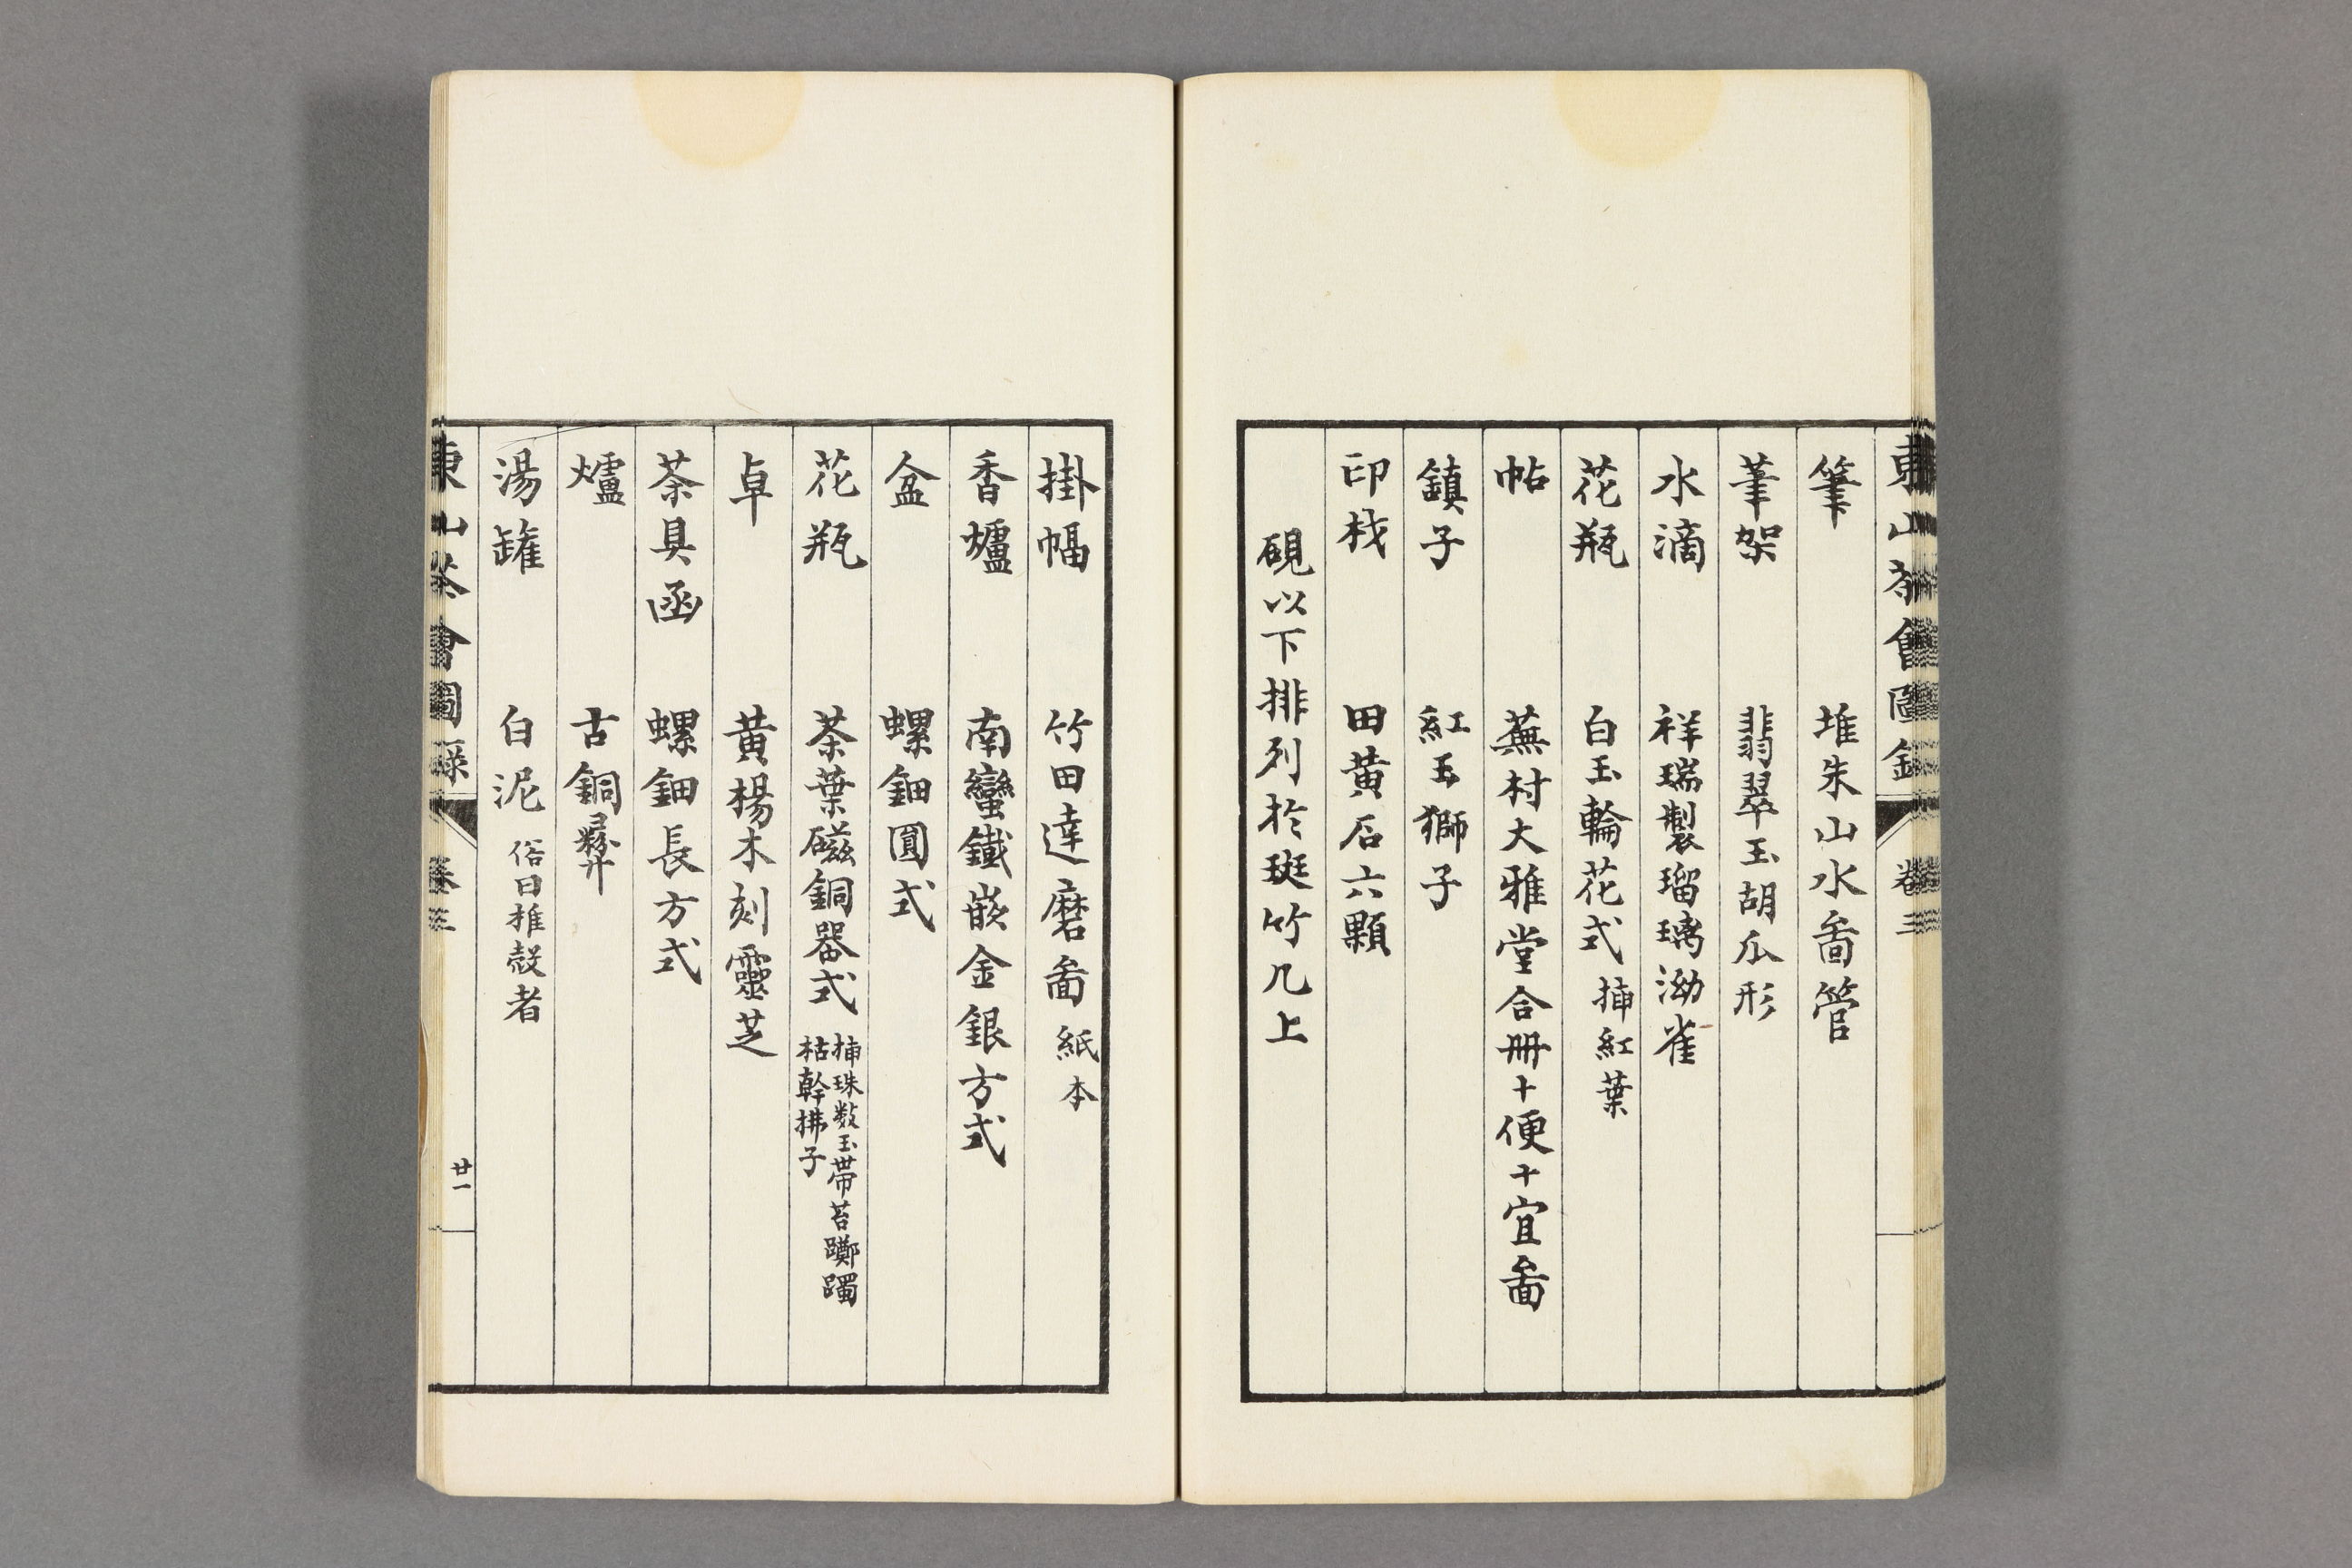 東山茶會圖錄 卷三
筆 堆朱山水啚管
筆架 翡翠玉胡瓜形
水滴 祥瑞製瑠璃泑雀
花瓶 白玉輪花式 挿紅葉
帖 蕪村大雅堂合册十便十宜啚
鎮子 紅玉獅子
印材 田黄石六顆
硯以下排列於斑竹几上
掛幅 竹田達磨啚 紙本
香爐 南蠻鐵嵌金銀方式
盆 螺鈿圓式
花瓶 茶葉磁銅器式 挿珠数玉帯苔躑躅
枯幹拂子
卓 黄楊木刻靈芝
茶具函 螺鈿長方式
爐 古銅彜
湯罐 白泥 俗曰推殻者
東山茶會圖錄 卷三 廿一